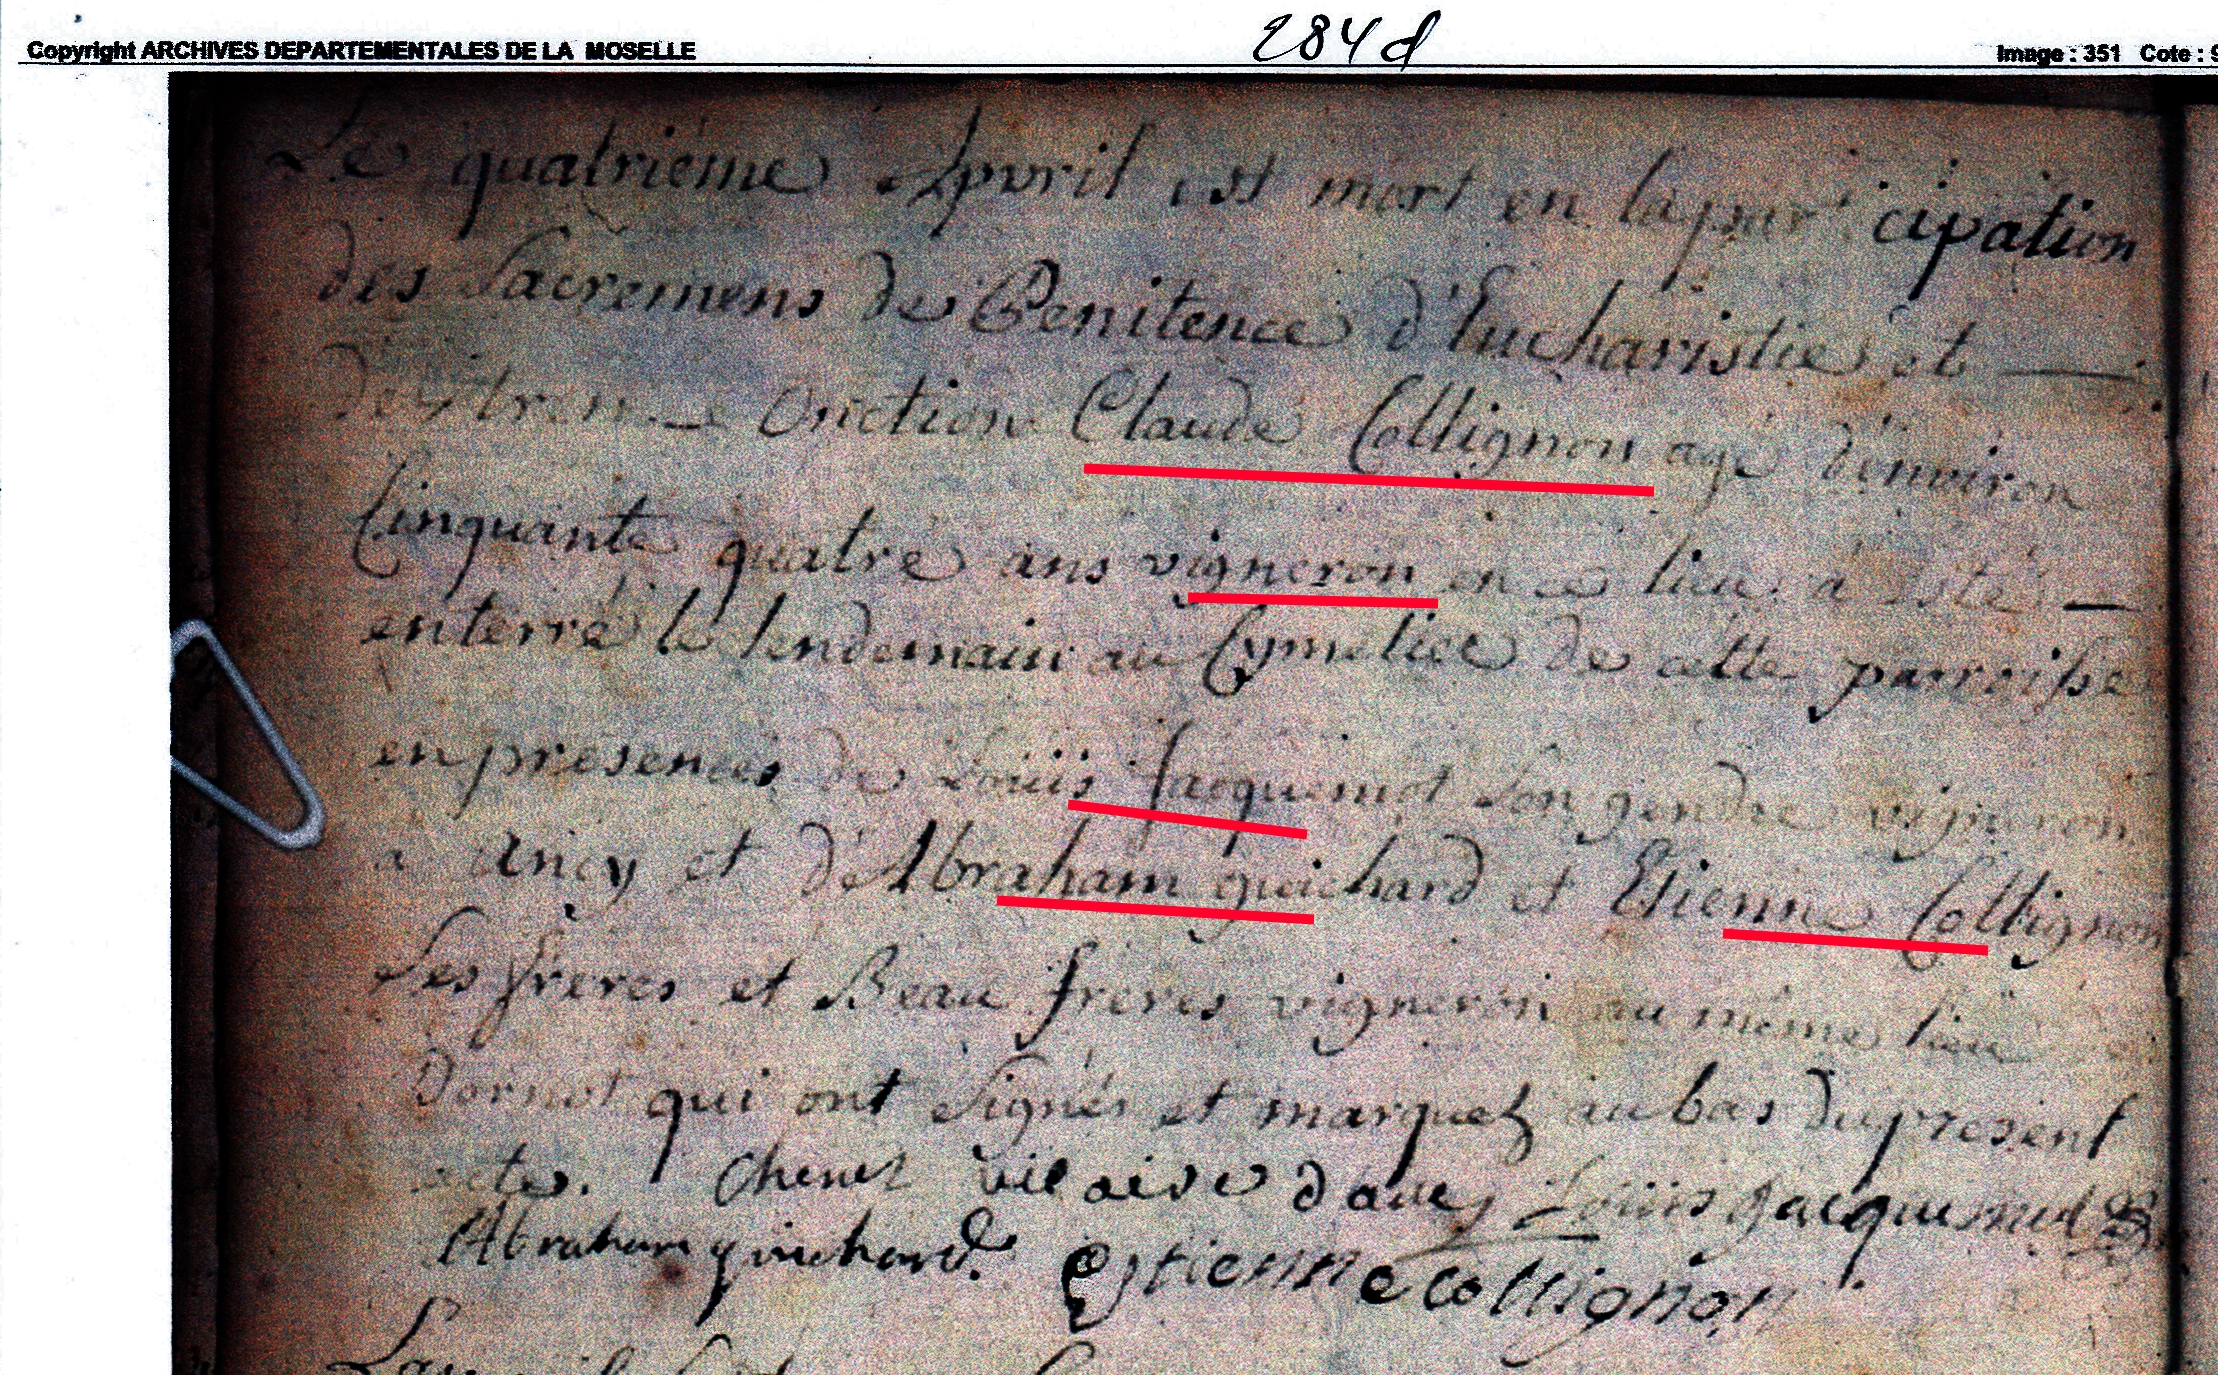 284 d
Copyright ARCHIVES DEPARTEMENTALES DE LA MOSELLE
Image : 351 Cote : 9
Le quatriéme Apvril est mort en la participation
des Sacremens de Penitence d'Eucharistie et
d'extreme Onction Claude Collignon agé d'environ
Cinquante quatre ans vigneron en ce lieu a esté
enterré le lendemain au Cymetiere de cette parroisse
en presences de Louis Jacquemot son gendre vigneron
a Ancy et d'Abraham guichard et Etienne Collignon
Ses freres et Beau freres vigneron au même lieu
Dornot qui ont Signés et marquez au bas du present
acte. vicaire dancy Louis Jacquemot
Abraham guichard Estienne Collignon